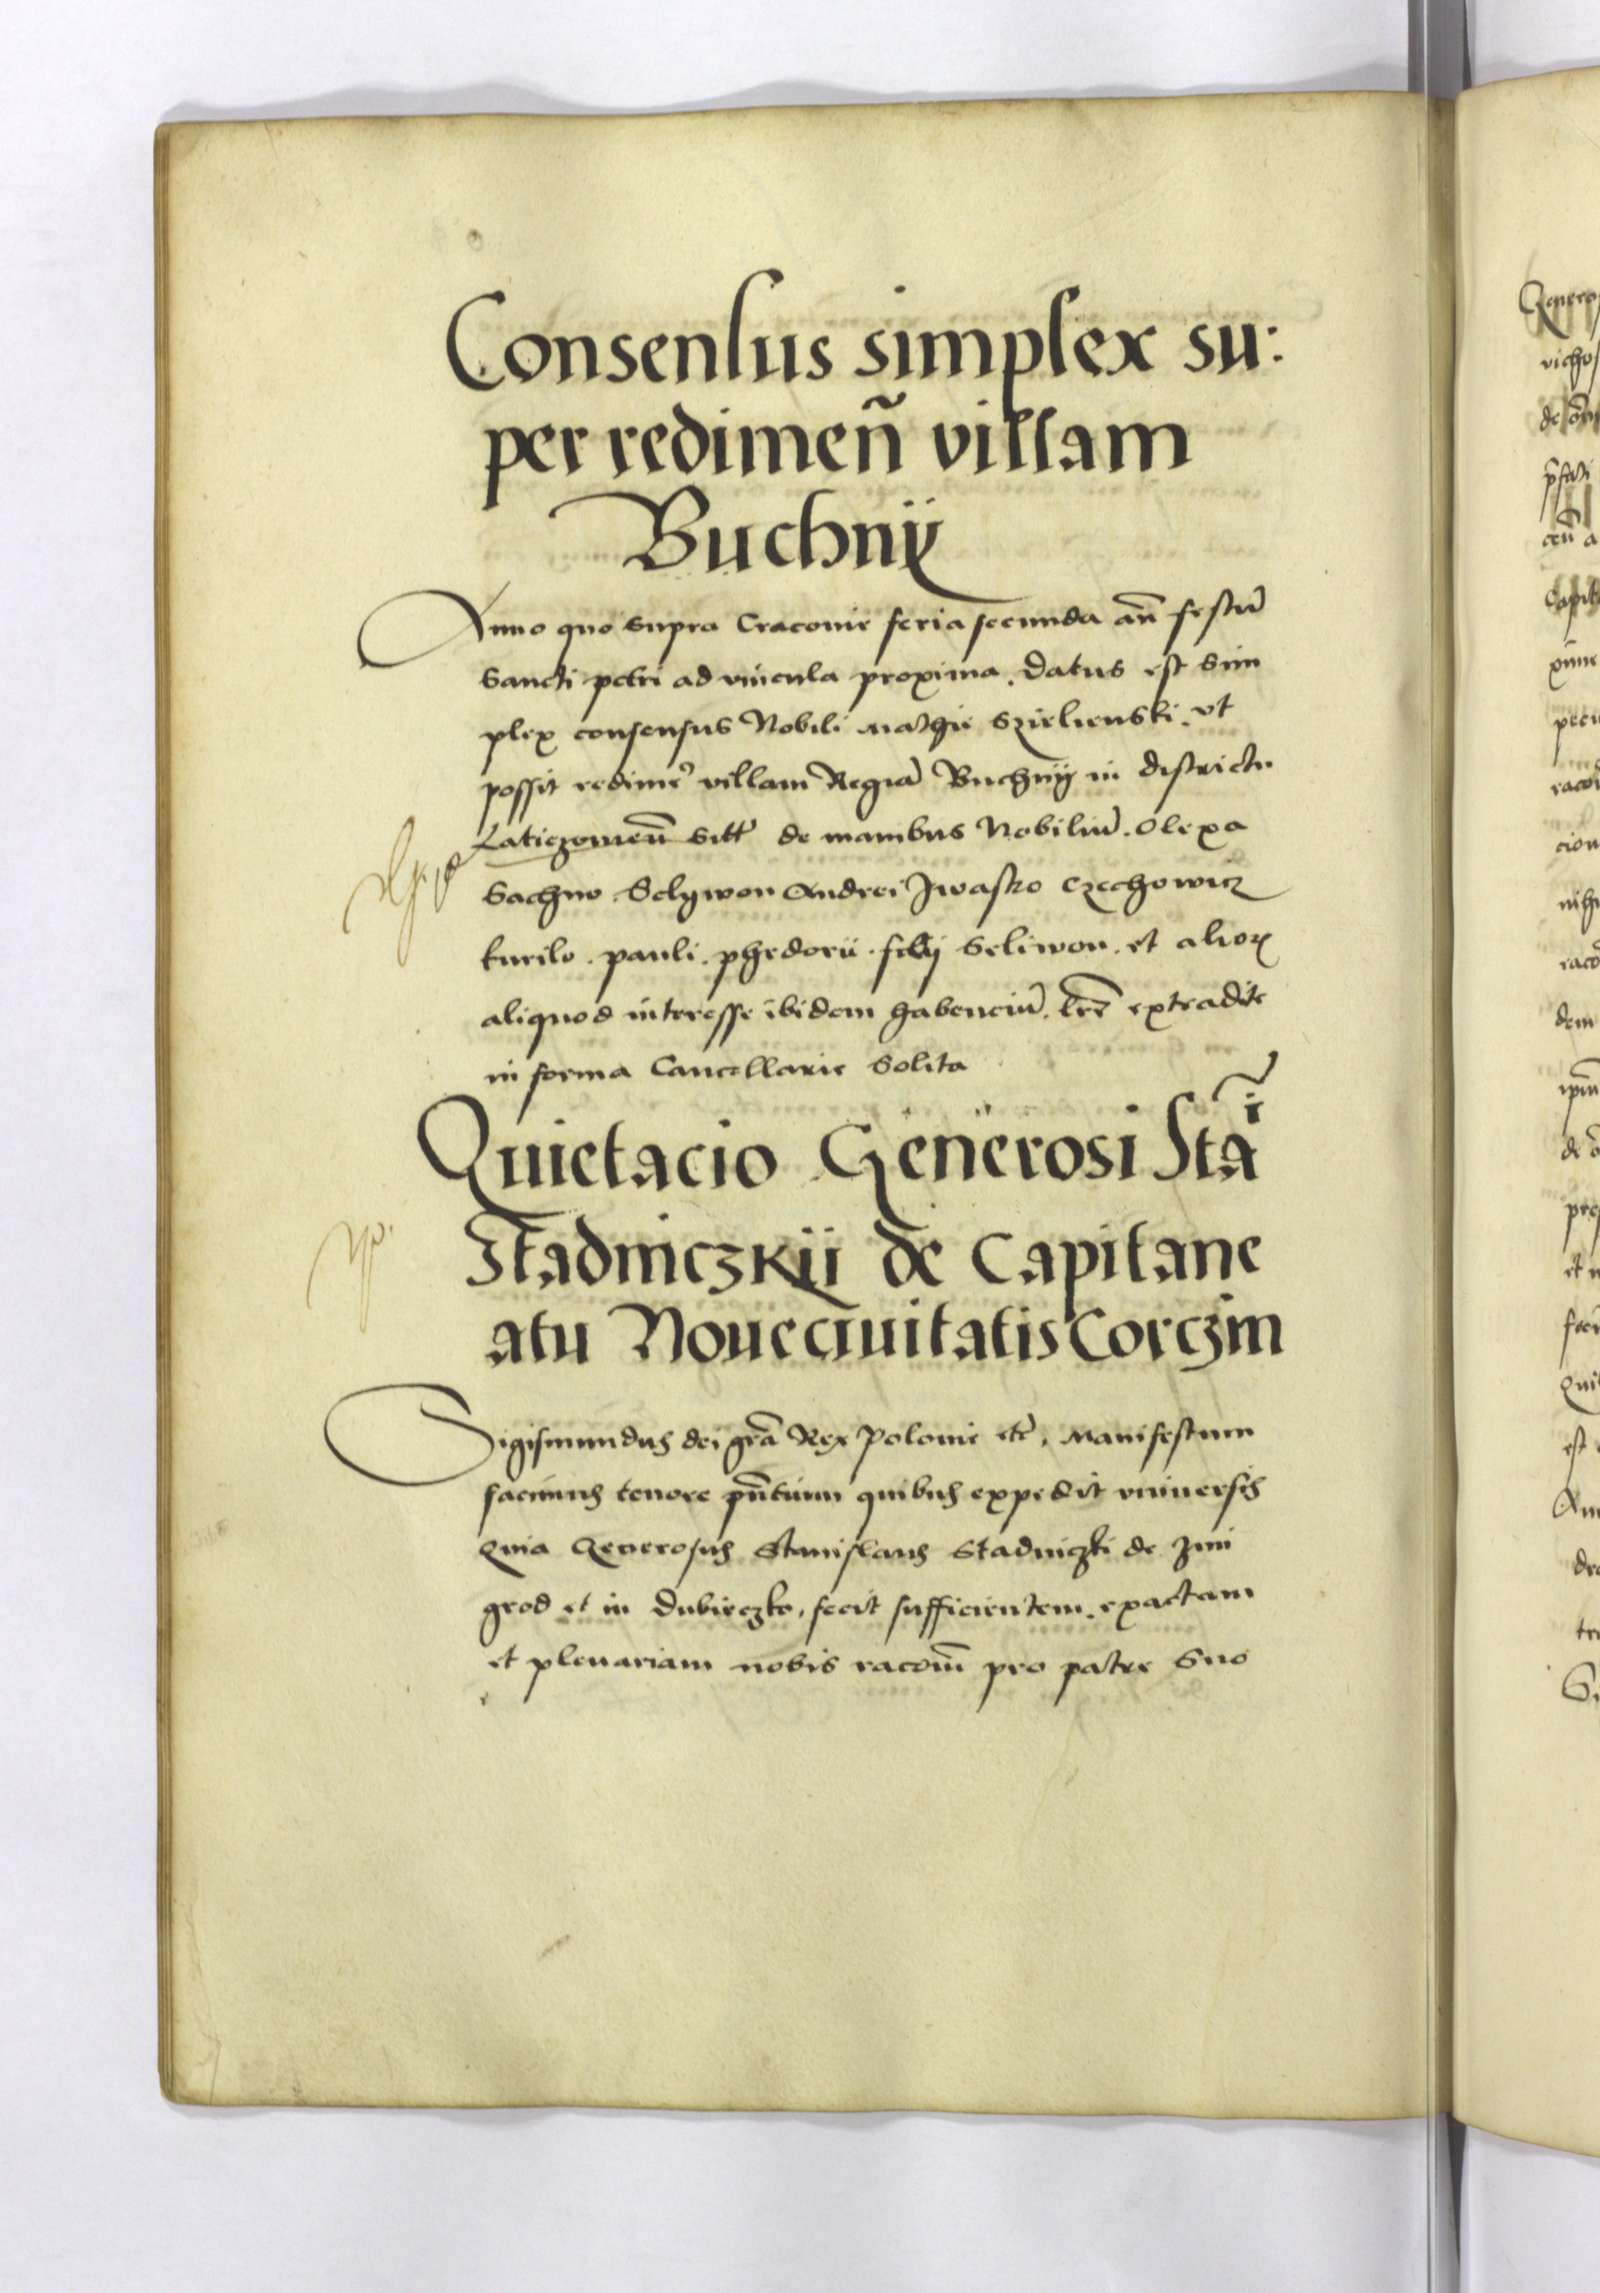 Consensus simplex su:
per redimen̄ villam
Buchnij
Anno quo supra Cracovie feria secunda an̄ festū
Sancti petri ad vincula proxima. Datus est Sim
plex consensus Nobili Mathie Szielienski. ut
possit redimer̓ villam Regiā Buchnij in districtu
Laticzovien̄ Sitt̄ de manibus Nobiliū. Olexa
Sachno Selywon Andrei Jwasko Czechowicz
kurilo. pauli. phedorii. filij Seliwon. et alioꝝ
aliquod interesse ibidem habenciū. Lr̄e extradite
in forma Cancellarie Solita
Quietacio Generosi Stāi
Stadniczkij de Capitane
atu Noueciuitatis Corczin
Sigismundus dei grā Rex Polonie etc̄. Manifestum
facimus tenore pn̄tium quibus expedit vniuersis
Quia Generosus Stanislaus Stadniczki de Zmi
grod et in Dubieczko, fecit sufficientem. exactam
et plenariam nobis racōm̄ pro patre Suo